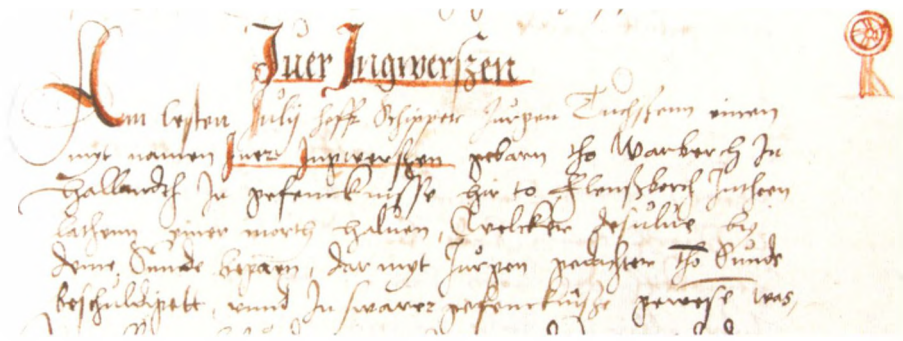 Iuer Ingwerszen
Am lesten Julij hefft Schipper Jurgen Tuchsszenn einen
myt namen Iuer Ingwerszen gebarn tho Warberch In
Hallandth In gefencknisse hir to Flenszborch Intheen
lathenn einer morth haluen, Welcker desulue by
deme Sunde begaen, darmyt Jurgen gedachter tho Sunde
beschuldigett vnnd In swarer gefencknisze gewese was,